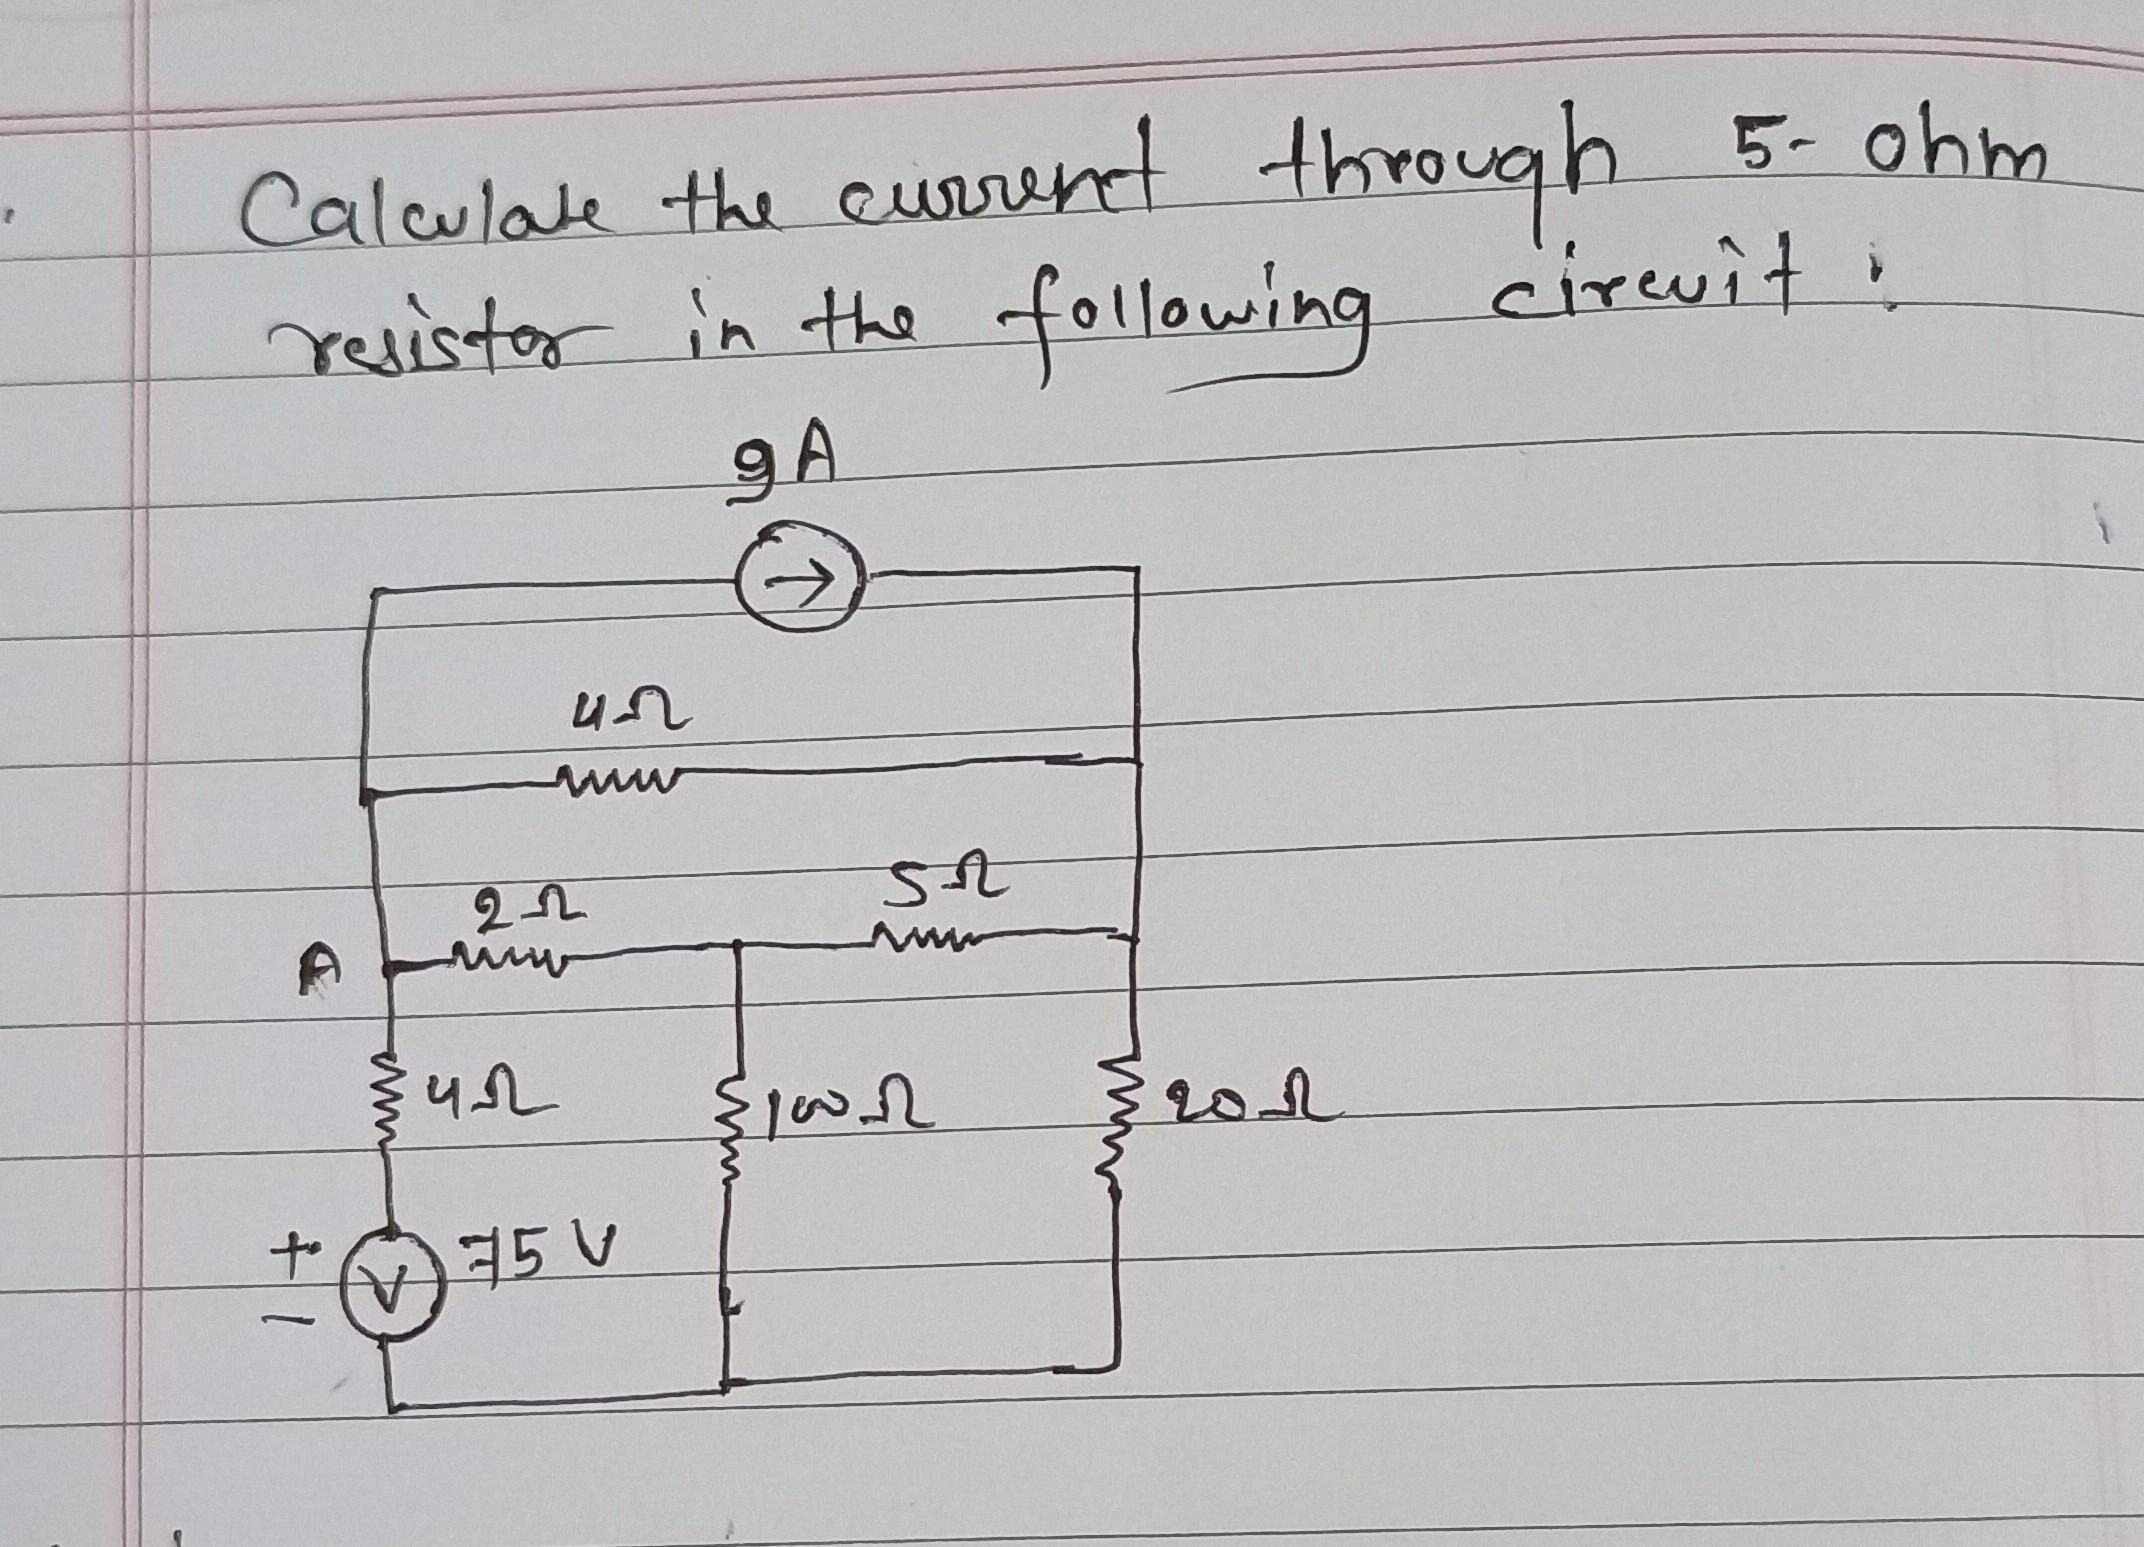 Calculate the current through 5-ohm
resistor in the following circuit:
9A
4Ω
2Ω
5Ω
A
4Ω
100Ω
20Ω
+
V
75 V
-